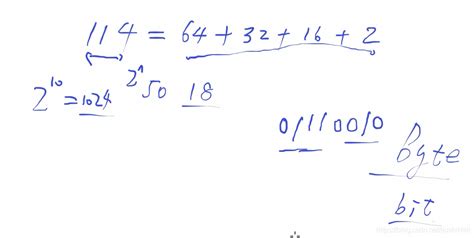 114 = 64 + 32 + 16 + 2
2^10 = 1024 2^ 50 18
01110010 Byte
bit